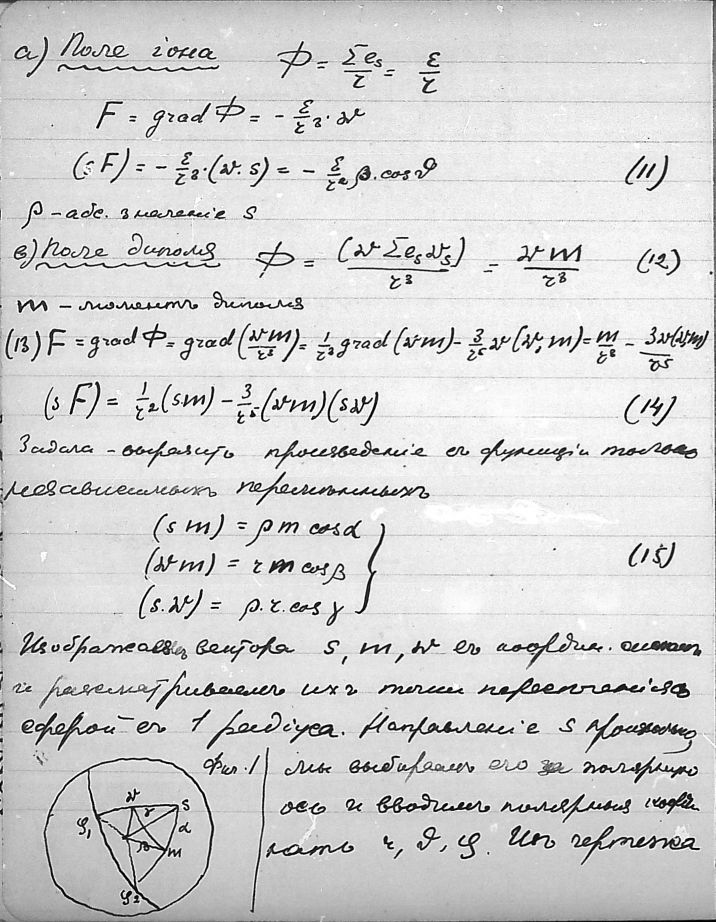 а) Поле іона Φ = Σe_s/r = ε/r
F = grad Φ = − ε/r³ · 𝔯
(s F) = − ε/r³ · (𝔯 · s) = − ε/r² ρ · cos ϑ (11)
ρ – абс. значеніе s
в) Поле диполя Φ = (𝔯 Σe_s 𝔯_s)/r³ = 𝔯 m/r³ (12)
m – моментъ диполя
(13) F = grad Φ = grad (𝔯m/r³) = 1/r³ grad (𝔯m) − 3/r⁵ 𝔯 (𝔯, m) = m/r³ − 3𝔯(𝔯m)/r⁵
(s F) = 1/r² (sm) − 3/r⁵ (𝔯m)(s𝔯) (14)
Задача – выразить произведеніе въ функціи только
независимыхъ перемѣнныхъ
(s m) = ρ m cos α
(𝔯m) = r m cos β (15)
(s. 𝔯) = ρ. r. cos γ
Изображаемъ вектора s, m, 𝔯 въ коорди.
и разсматриваемъ ихъ точки пересѣченія съ
сферой съ 1 радіуса. Направленіе s произвольно,
Фиг. 1 мы выбираемъ его за полярную
ось и вводимъ полярныя коорди
наты r, ϑ, φ. Изъ чертежа
𝔯 γ s
φ₁ α
β m
φ₂